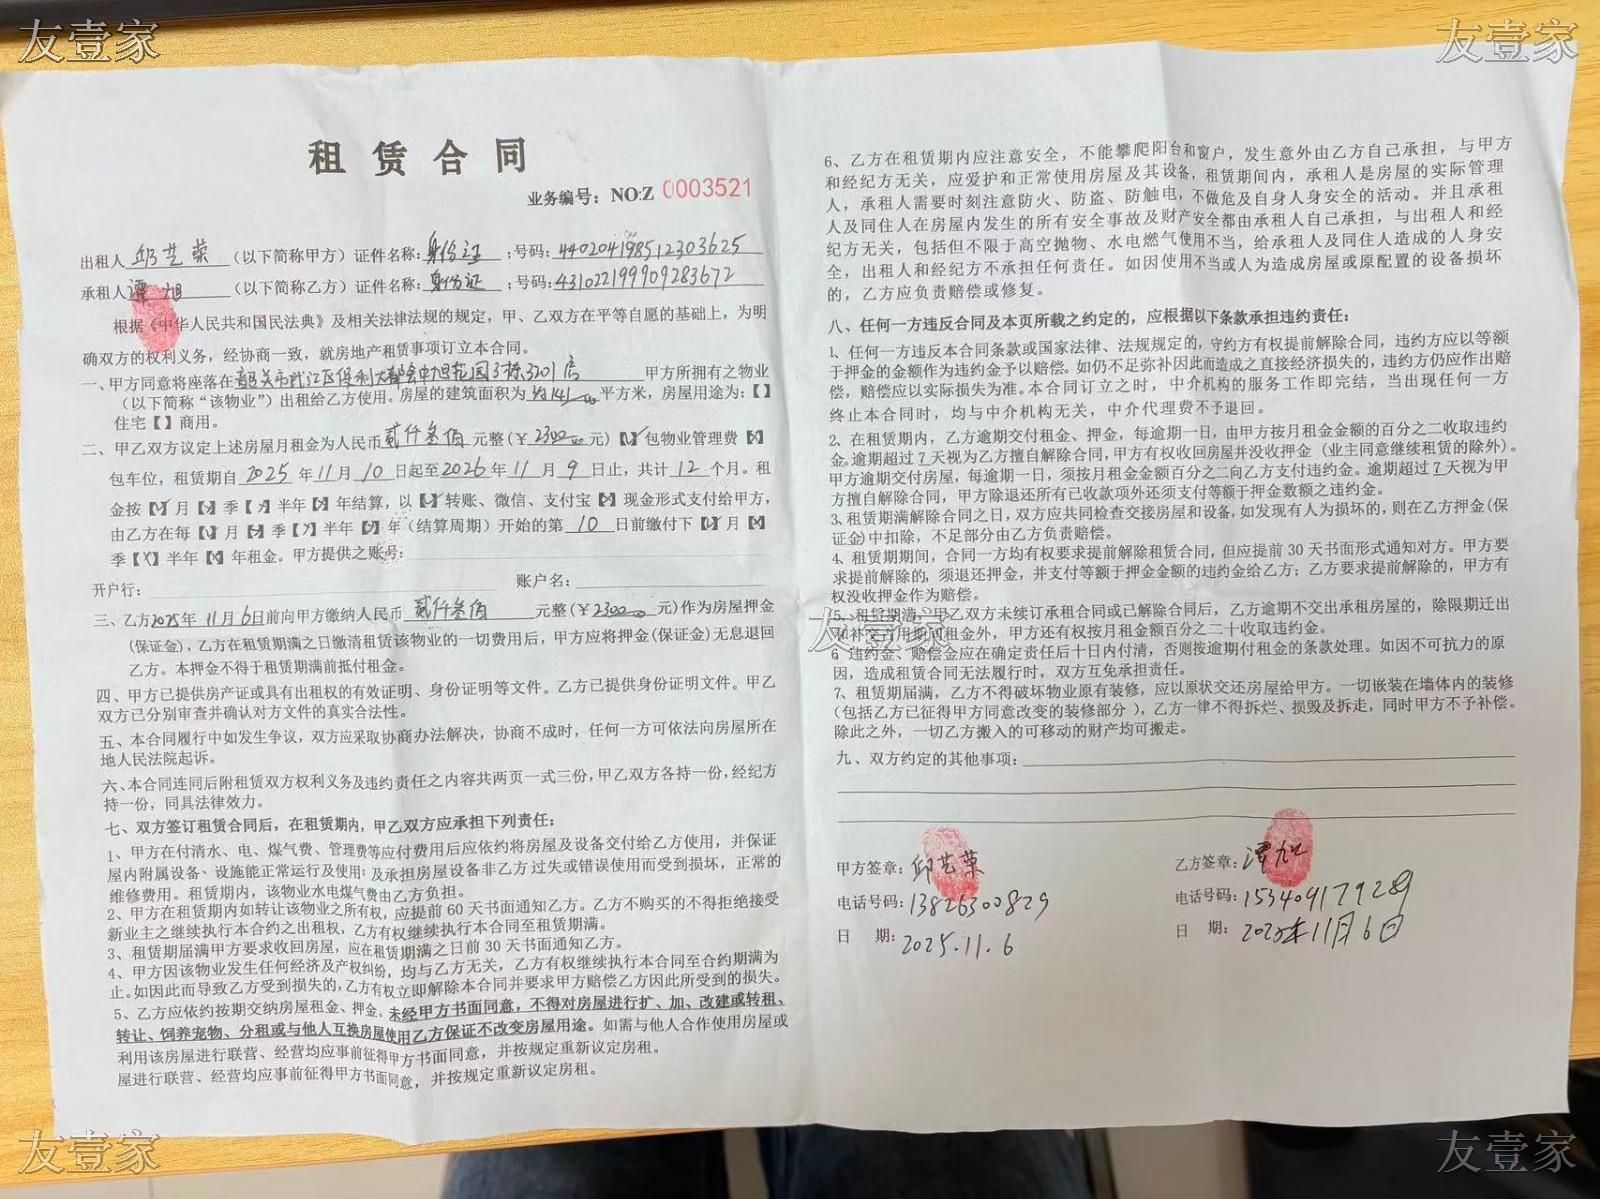 友壹家
友壹家
租赁合同
业务编号：NO:Z 0003521
出租人 邱艺荣 （以下简称甲方）证件名称：身份证；号码：440204198512303625
承租人 谭旭 （以下简称乙方）证件名称：身份证；号码：431022199909283672
根据《中华人民共和国民法典》及相关法律法规的规定，甲、乙双方在平等自愿的基础上，为明
确双方的权利义务，经协商一致，就房地产租赁事项订立本合同。
一、甲方同意将座落在韶关市武江区保利大都会中旦花园3栋3201房 甲方所拥有之物业
（以下简称“该物业”）出租给乙方使用。房屋的建筑面积为 约141 平方米，房屋用途为：【】
住宅【】商用。
二、甲乙双方议定上述房屋月租金为人民币贰仟叁佰元整（￥2300.00元）【✓】包物业管理费【×】
包车位，租赁期自 2025 年 11 月 10 日起至 2026 年 11 月 9 日止，共计 12 个月。租
金按【✓】月【×】季【×】半年【×】年结算，以【✓】转账、微信、支付宝【×】现金形式支付给甲方，
由乙方在每【✓】月【×】季【×】半年【×】年（结算周期）开始的第 10 日前缴付下【✓】月【×】
季【×】半年【×】年租金。甲方提供之账号：
开户行： 账户名：
三、乙方2025年 11月6日前向甲方缴纳人民币 贰仟叁佰 元整（￥2300.00元）作为房屋押金
（保证金），乙方在租赁期满之日缴清租赁该物业的一切费用后，甲方应将押金（保证金）无息退回
乙方。本押金不得于租赁期满前抵付租金。
四、甲方已提供房产证或具有出租权的有效证明、身份证明等文件。乙方已提供身份证明文件。甲乙
双方已分别审查并确认对方文件的真实合法性。
五、本合同履行中如发生争议，双方应采取协商办法解决，协商不成时，任何一方可依法向房屋所在
地人民法院起诉。
六、本合同连同后附租赁双方权利义务及违约责任之内容共两页一式三份，甲乙双方各持一份，经纪方
持一份，同具法律效力。
七、双方签订租赁合同后，在租赁期内，甲乙双方应承担下列责任：
1、甲方在付清水、电、煤气费、管理费等应付费用后应依约将房屋及设备交付给乙方使用，并保证
屋内附属设备、设施能正常运行及使用；及承担房屋设备非乙方过失或错误使用而受到损坏，正常的
维修费用。租赁期内，该物业水电煤气费由乙方负担。
2、甲方在租赁期内如转让该物业之所有权，应提前60天书面通知乙方。乙方不购买的不得拒绝接受
新业主之继续执行本合约之出租权，乙方有权继续执行本合同至租赁期满。
3、租赁期届满甲方要求收回房屋，应在租赁期满之日前30天书面通知乙方。
4、甲方因该物业发生任何经济及产权纠纷，均与乙方无关，乙方有权继续执行本合同至合约期满为
止。如因此而导致乙方受到损失的，乙方有权立即解除本合同并要求甲方赔偿乙方因此所受到的损失。
5、乙方应依约按期交纳房屋租金、押金。未经甲方书面同意，不得对房屋进行扩、加、改建或转租、
转让、饲养宠物、分租或与他人互换房屋使用乙方保证不改变房屋用途。如需与他人合作使用房屋或
利用该房屋进行联营、经营均应事前征得甲方书面同意，并按规定重新议定房租。
屋进行联营、经营均应事前征得甲方书面同意，并按规定重新议定房租。
6、乙方在租赁期内应注意安全，不能攀爬阳台和窗户，发生意外由乙方自己承担，与甲方
和经纪方无关，应爱护和正常使用房屋及其设备，租赁期间内，承租人是房屋的实际管理
人，承租人需要时刻注意防火、防盗、防触电，不做危及自身人身安全的活动。并且承租
人及同住人在房屋内发生的所有安全事故及财产安全都由承租人自己承担，与出租人和经
纪方无关，包括但不限于高空抛物、水电燃气使用不当，给承租人及同住人造成的人身安
全，出租人和经纪方不承担任何责任。如因使用不当或人为造成房屋或原配置的设备损坏
的，乙方应负责赔偿或修复。
八、任何一方违反合同及本页所载之约定的，应根据以下条款承担违约责任：
1、任何一方违反本合同条款或国家法律、法规规定的，守约方有权提前解除合同，违约方应以等额
于押金的金额作为违约金予以赔偿。如仍不足弥补因此而造成之直接经济损失的，违约方仍应作出赔
偿，赔偿应以实际损失为准。本合同订立之时，中介机构的服务工作即完结，当出现任何一方
终止本合同时，均与中介机构无关，中介代理费不予退回。
2、在租赁期内，乙方逾期交付租金、押金，每逾期一日，由甲方按月租金金额的百分之二收取违约
金。逾期超过7天视为乙方擅自解除合同，甲方有权收回房屋并没收押金（业主同意继续租赁的除外）。
甲方逾期交付房屋，每逾期一日，须按月租金金额百分之二向乙方支付违约金。逾期超过7天视为甲
方擅自解除合同，甲方除退还所有已收款项外还须支付等额于押金数额之违约金。
3、租赁期满解除合同之日，双方应共同检查交接房屋和设备，如发现有人为损坏的，则在乙方押金（保
证金）中扣除，不足部分由乙方负责赔偿。
4、租赁期期间，合同一方均有权要求提前解除租赁合同，但应提前30天书面形式通知对方。甲方要
求提前解除的，须退还押金，并支付等额于押金金额的违约金给乙方；乙方要求提前解除的，甲方有
权没收押金作为赔偿。
5、租赁期满，甲乙双方未续订承租合同或已解除合同后，乙方逾期不交出承租房屋的，除限期迁出
和补交占用期间租金外，甲方还有权按月租金额百分之二十收取违约金。
友壹家
6、违约金、赔偿金应在确定责任后十日内付清，否则按逾期付租金的条款处理。如因不可抗力的原
因，造成租赁合同无法履行时，双方互免承担责任。
7、租赁期届满，乙方不得破坏物业原有装修，应以原状交还房屋给甲方。一切嵌装在墙体内的装修
（包括乙方已征得甲方同意改变的装修部分），乙方一律不得拆烂、损毁及拆走，同时甲方不予补偿。
除此之外，一切乙方搬入的可移动的财产均可搬走。
九、双方约定的其他事项：
甲方签章：邱艺荣
电话号码：13826300829
日 期：2025.11.6
乙方签章：谭旭
电话号码：15340917928
日 期：2025年11月6日
友壹家
友壹家